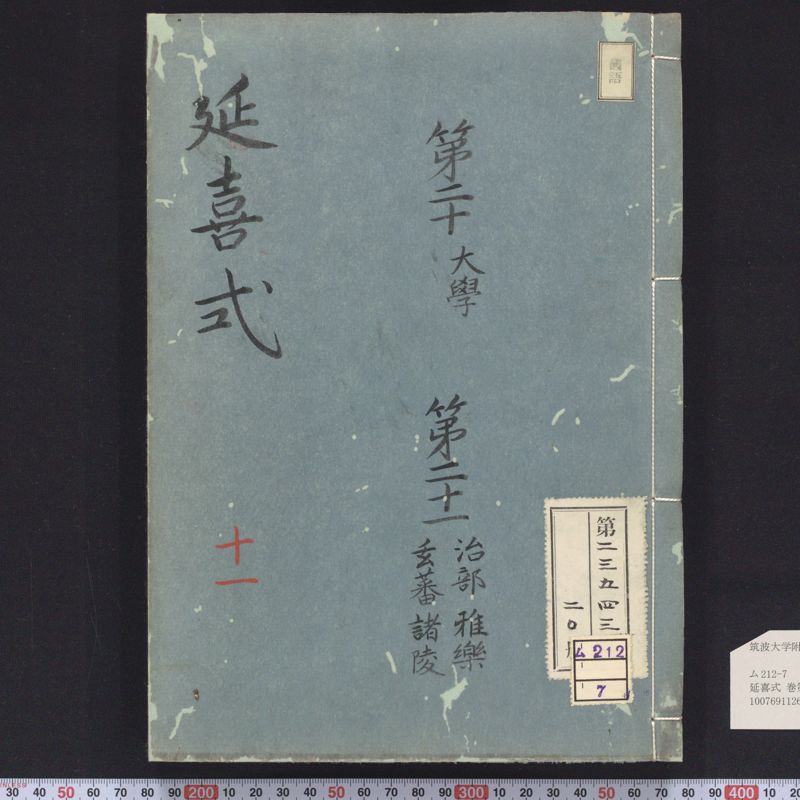 國語
延喜式
第二十 大學
第二十一
治部 雅樂
玄蕃 諸陵
十一
第二三九四三
二〇册
ム212
7
筑波大学附
ム212-7
延喜式 巻
1007691126
30 40 50 60 70 80 90 200 10 20 30 40 50 60 70 80 90 300 10 20 30 40 50 60 70 80 90 400 10 20